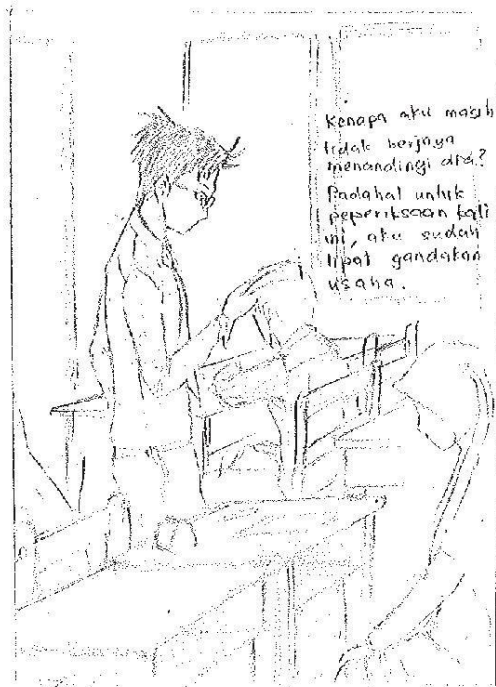 Kenapa aku masih
tidak berjaya
menandingi dia?
Padahal untuk
peperiksaan kali
ini, aku sudah
lipat gandakan
usaha.